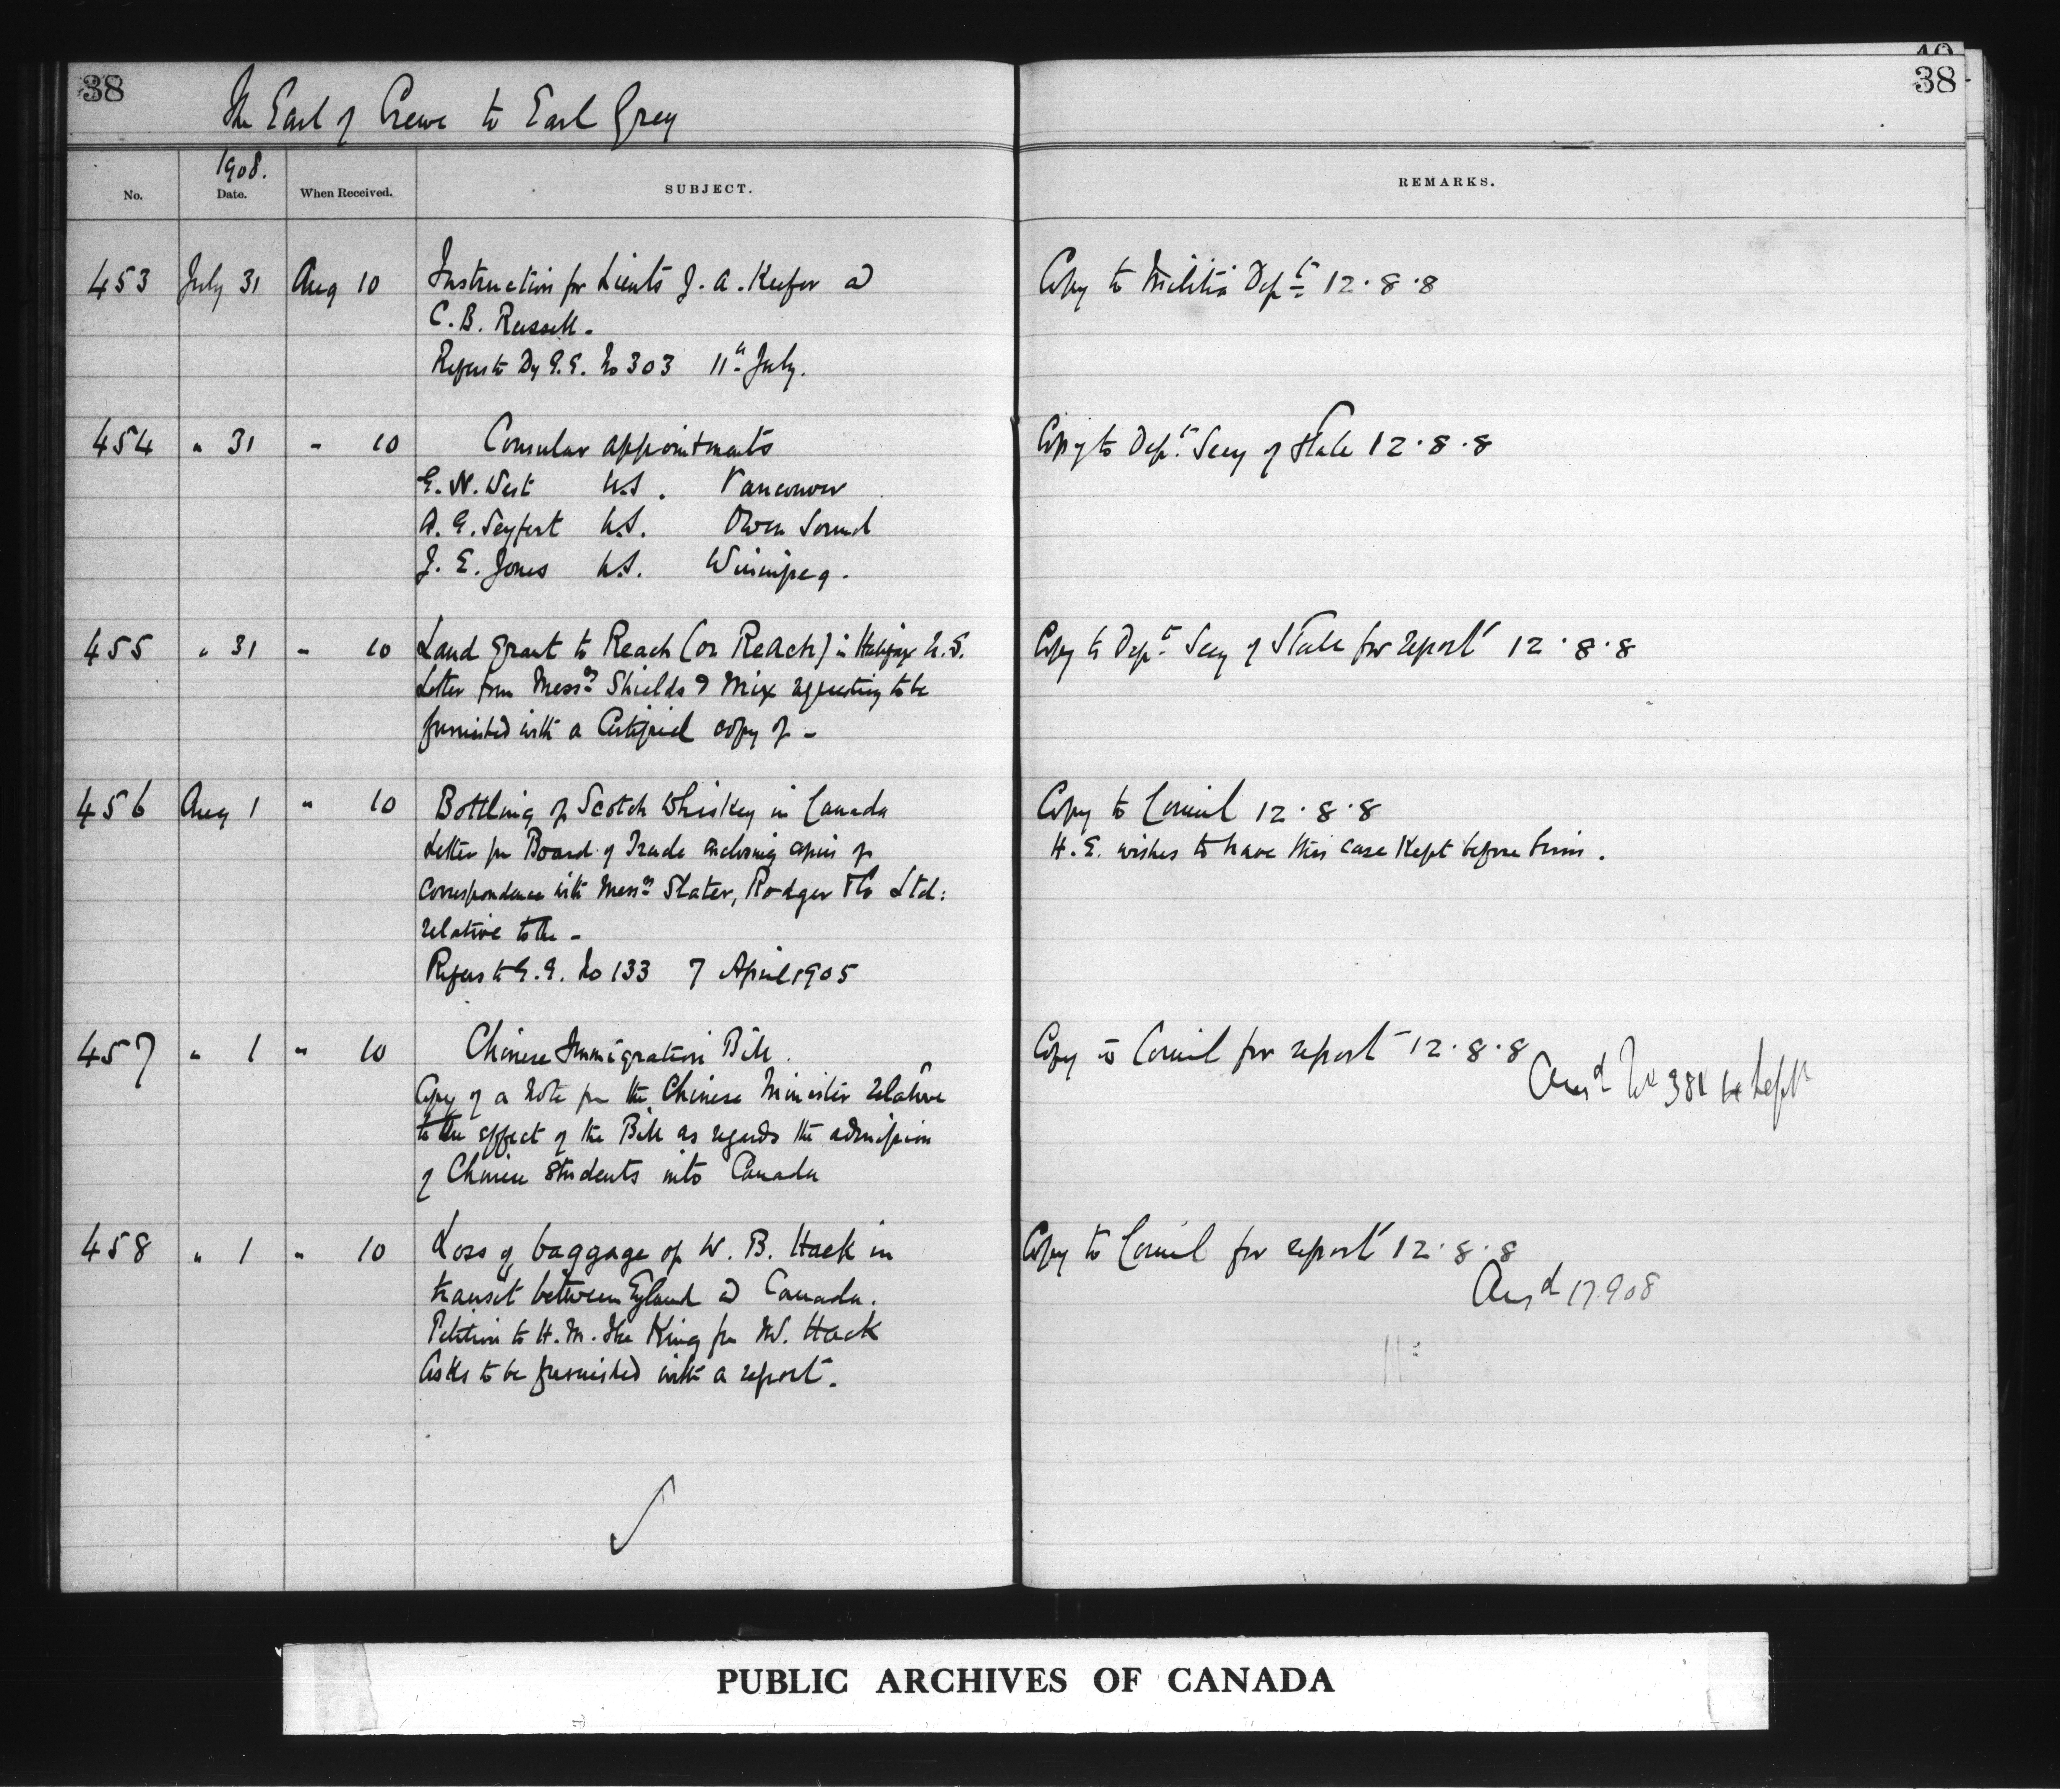 38
The Earl of Crewe to Earl Grey
38
1908.
No. Date. When Received. SUBJECT. REMARKS.
453 July 31 Aug 10 Instruction for Lieuts J. A. Keefer &
C. B. Russell.
Refers to Dy G.G. No 303 11th July.
Copy to Militia Dept 12.8.8
454 " 31 " 10 Consular appointments
E. N. West U.S. Vancouver
A. G. Seyfert U.S. Owen Sound
J. E. Jones U.S. Winnipeg.
Copy to Dept Secy of State 12.8.8
455 " 31 " 10 Land Grant to Reach (or Reach) in Halifax N.S.
Letter from Messrs Shields & Mix requesting to be
furnished with a Certified copy of -
Copy to Dept Secy of State for report 12.8.8
456 Aug 1 " 10 Bottling of Scotch Whiskey in Canada
Letter fr Board of Trade enclosing copies of
correspondence with Messrs Slater, Rodger & Co Ltd:
relative to the -
Refers to G.G. No 133 7 April 1905
Copy to Council 12.8.8
H.E. wishes to have this case kept before him.
457 " 1 " 10 Chinese Immigration Bill.
Copy of a Note fr the Chinese Minister relative
to the effect of the Bill as regards the admission
of Chinese Students into Canada
Copy to Council for report 12.8.8
Ansd No 381 14 Sept
458 " 1 " 10 Loss of baggage of W. B. Hack in
transit between England & Canada.
Petition to H.M. The King fr Mr. Hack
Asks to be furnished with a report.
Copy to Council for report 12.8.8
Ansd 17.9.08
PUBLIC ARCHIVES OF CANADA